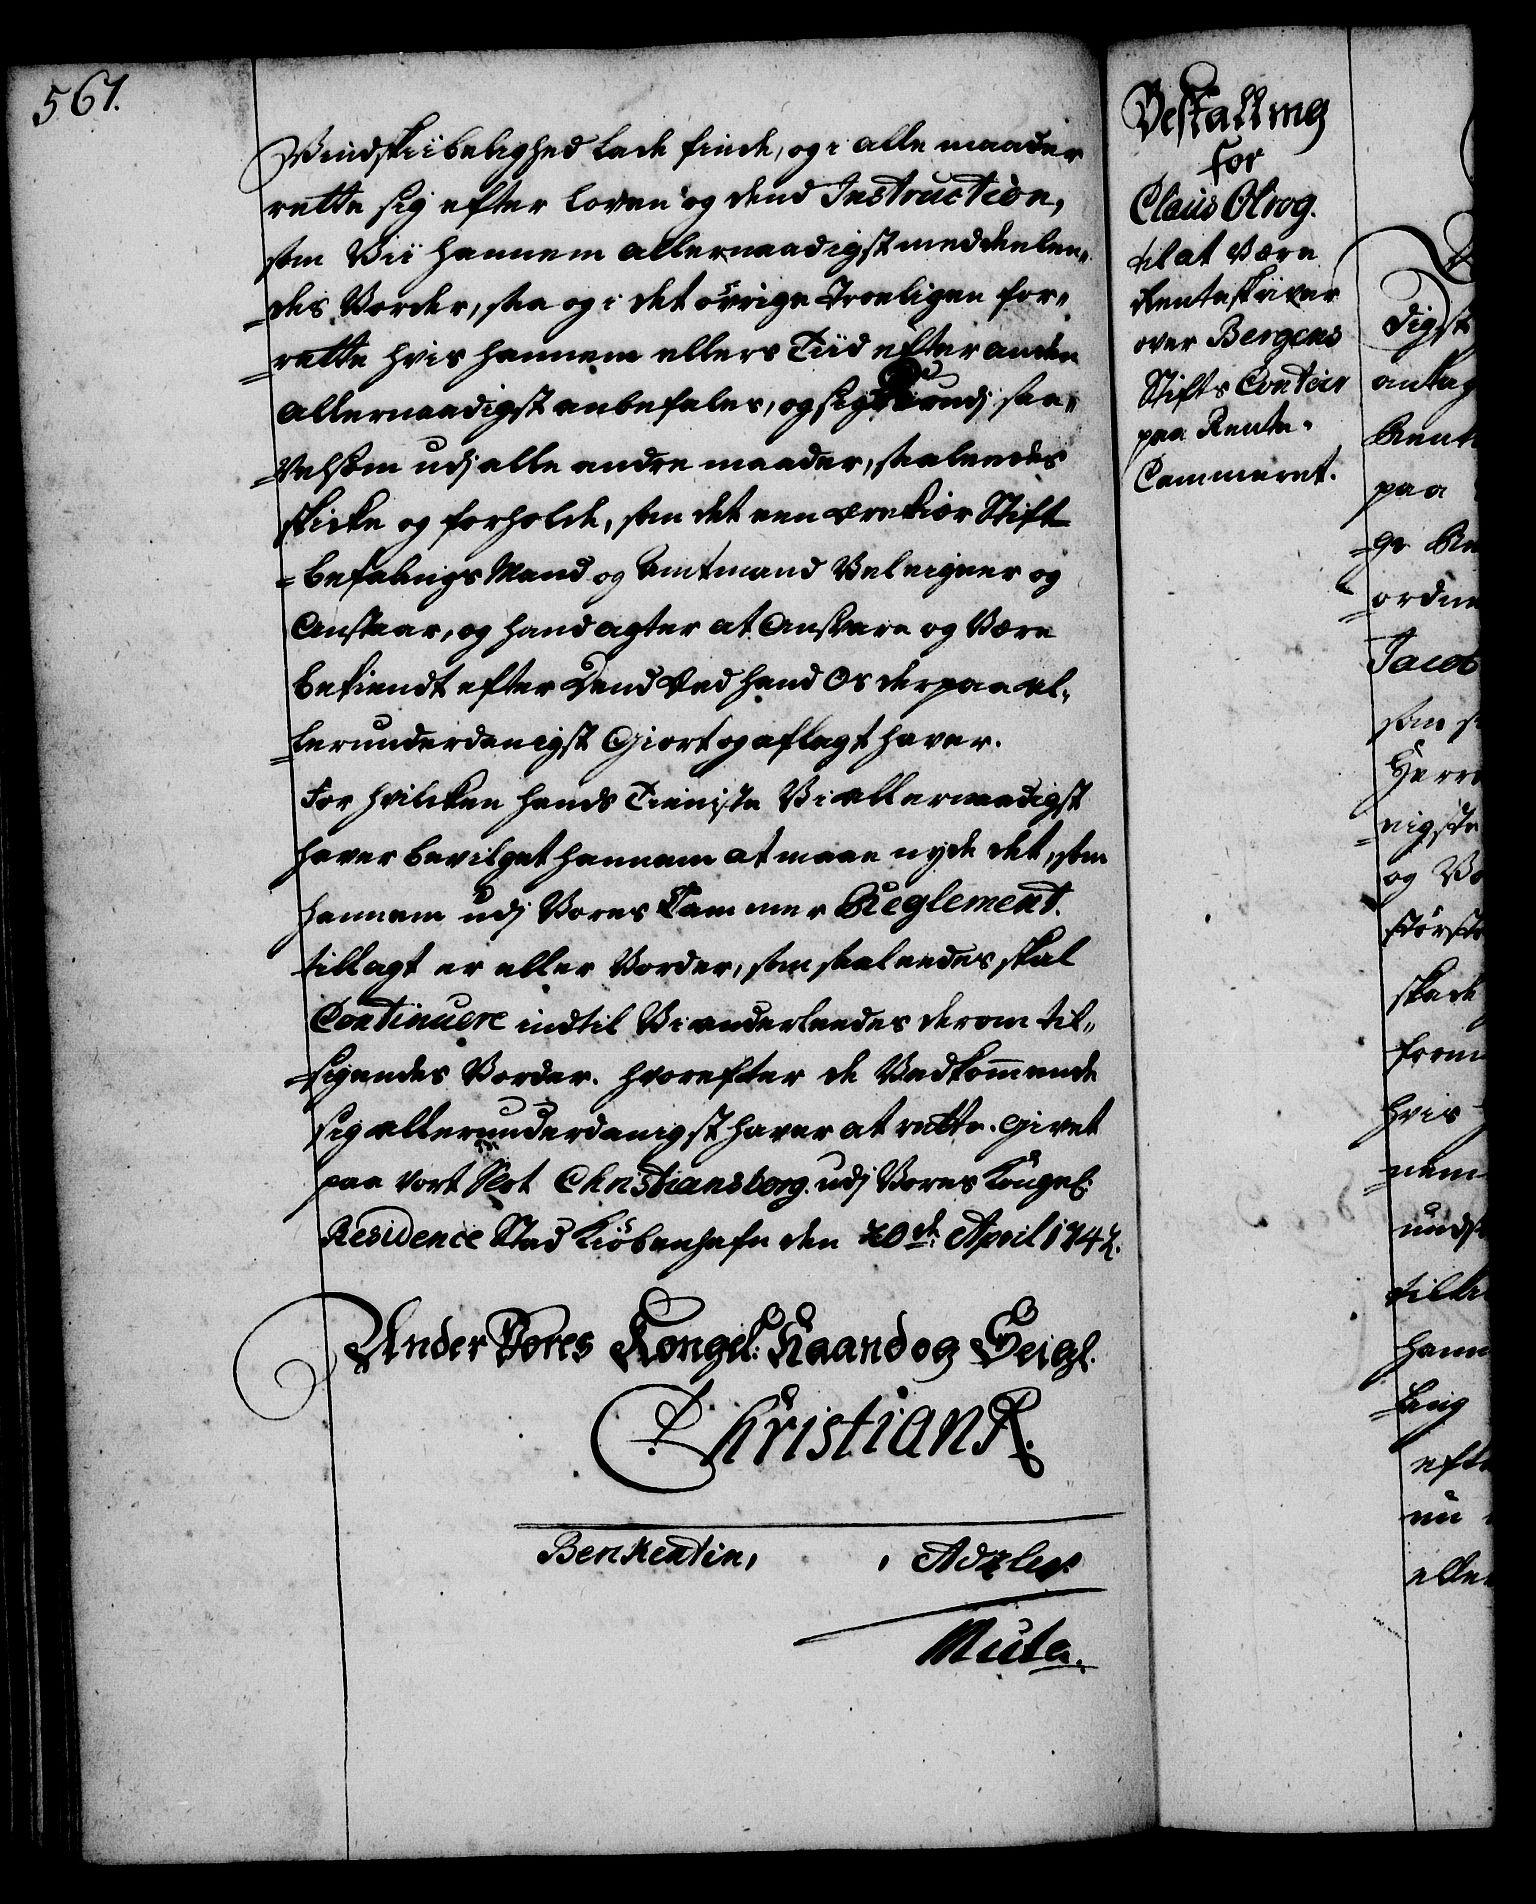 567.
Vindskiibelighed lade finde, og i alle maader
rette sig efter loven og dend Instruction,
som Vii hannem allernaadigst meddeelen-
des Vorder, saa og i det øvrige Troeligen for-
rette hvis hannem ellers Tiid efter anden
allernaadigst anbefales, og sig herudj saa-
velsom udj alle andre maader, saaleedes
skicke og forholde, som det een
Stift
befalings Mand og Amtmand Vel eigner og
Anstaar, og hand agter at Ansvare og Være
bekiendt efter Dend Eed hand Os derpaa al-
lerunderdanigst Giort og aflagt haver.
For hvilcken hands Tieniste Vi allernaadigst
haver bevilget hannem at maae nyde det, som
hannem udj Vores Cammer Reglement.
tillagt er eller Vorder, som saaleedes skal
Continuere indtil Vi anderleedes derom til-
sigendes Vorder. hvorefter de Vedkommende
sig allerunderdanigst haver at rette. Givet
paa vort Slot Christiansborg. udj Vores Kongel:
Residence Stad Kiøbenhafn den 20de April 1742.
Under Vores Kongel: Haand og Seigl.
Christian R.
Berckentin,
Adzler.
Muta.
Bestalling
for
Claus Olrog.
til at være
Renteskriver
over Bergens
Stifts Contoir
paa Rente-
Cammeret.
digst
antag
Rent
paa
ordne
Jacob
som
Herre
nigste
og Vo
største
skade
hvis
nem
tilke
hann
efte
nu
eller